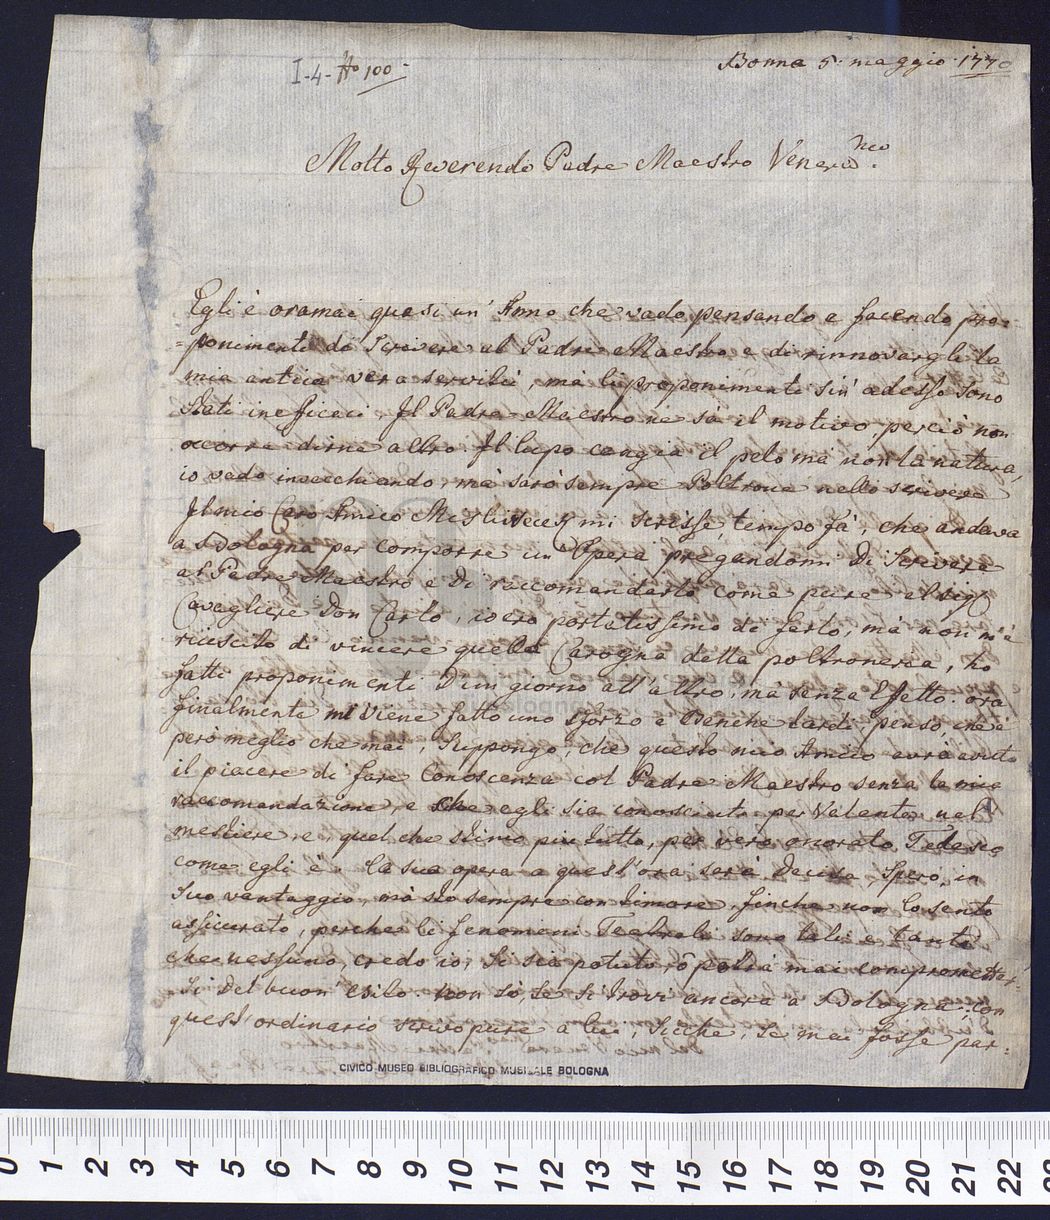 I-4- No 100-
Bonna 5. maggio. 1770
Molto Reverendo Padre Maestro Venerd.mo
Egli è oramai quasi un' Anno che vado pensando e facendo pro=
=ponimenti di Scrivere al Padre Maestro e di rinnovargli la
mia antica vera servitù, mà li proponimenti sin' adesso sono
stati ineficaci. Il Padre Maestro ne sà il motivo perciò non
occorre dirne altro. Il lupo cangia il pelo mà non la natura,
io vado invecchiando, mà sarò sempre Poltrone nello scrivere
Il mio Caro Amico Misliwecek mi scrisse, tempo fà, che andava
a Bologna per comporre un' Opera pregandomi Di Scrivere
al Padre Maestro e Di raccomandarlo come pure al Sigr
Cavagliere Don Carlo, io ero portatissimo de farlo, mà non m'è
riuscito di vincere quella Carogna della poltroneria, hò
fatti proponimenti D'un giorno all' altro, mà senza Effetto. ora
finalmente mi viene fatto uno sforzo e Benche tardi, penso, che è
però meglio che mai, Suppongo, che questo mio Amico avrà avuto
il piacere di fare Conoscenza col Padre Maestro senza la mia
raccomandazione, e che egli sia conosciuto per Valente nel
mestiere, e, quel che stimo piu tutto, per vero onorato Tedesco
come egli è. La sua opera a quest' ora sarà Decisa, Spero, in
Suo vantaggio, mà sto sempre con timore, finche non lo sento
assicurato, perche li fenomeni Teatrali sono tali e tanti
che nessuno, credo io, si sia potuto, ò potrà mai compromettar=
=si Del buon esito. non sò, se si trovi ancora a Bologna: con
quest' ordinario scrivo pure a lui, Sicche, Se mai fosse par=
CIVICO MUSEO BIBLIOGRAFICO MUSICALE BOLOGNA
0 1 2 3 4 5 6 7 8 9 10 11 12 13 14 15 16 17 18 19 20 21 22